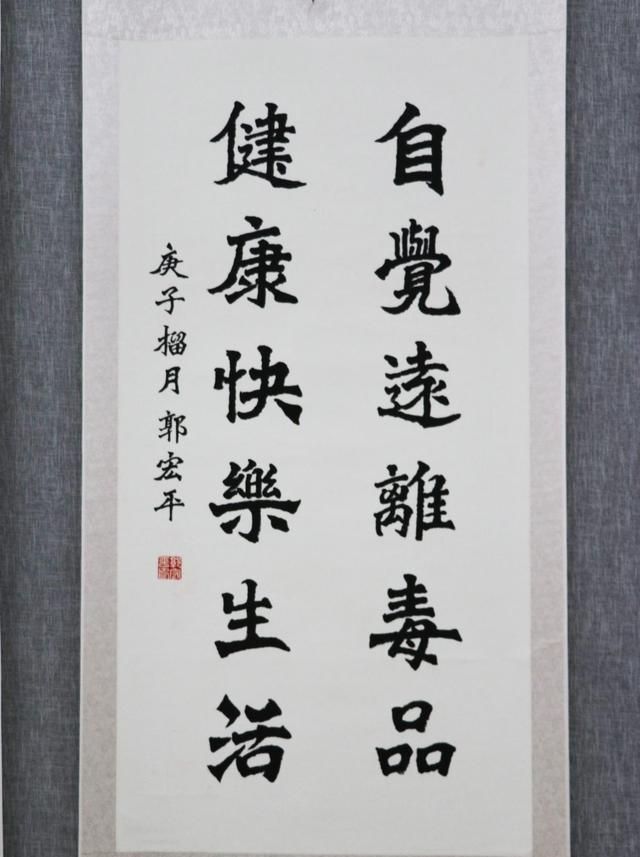 自覺遠離毒品
健康快樂生活
庚子榴月郭宏平